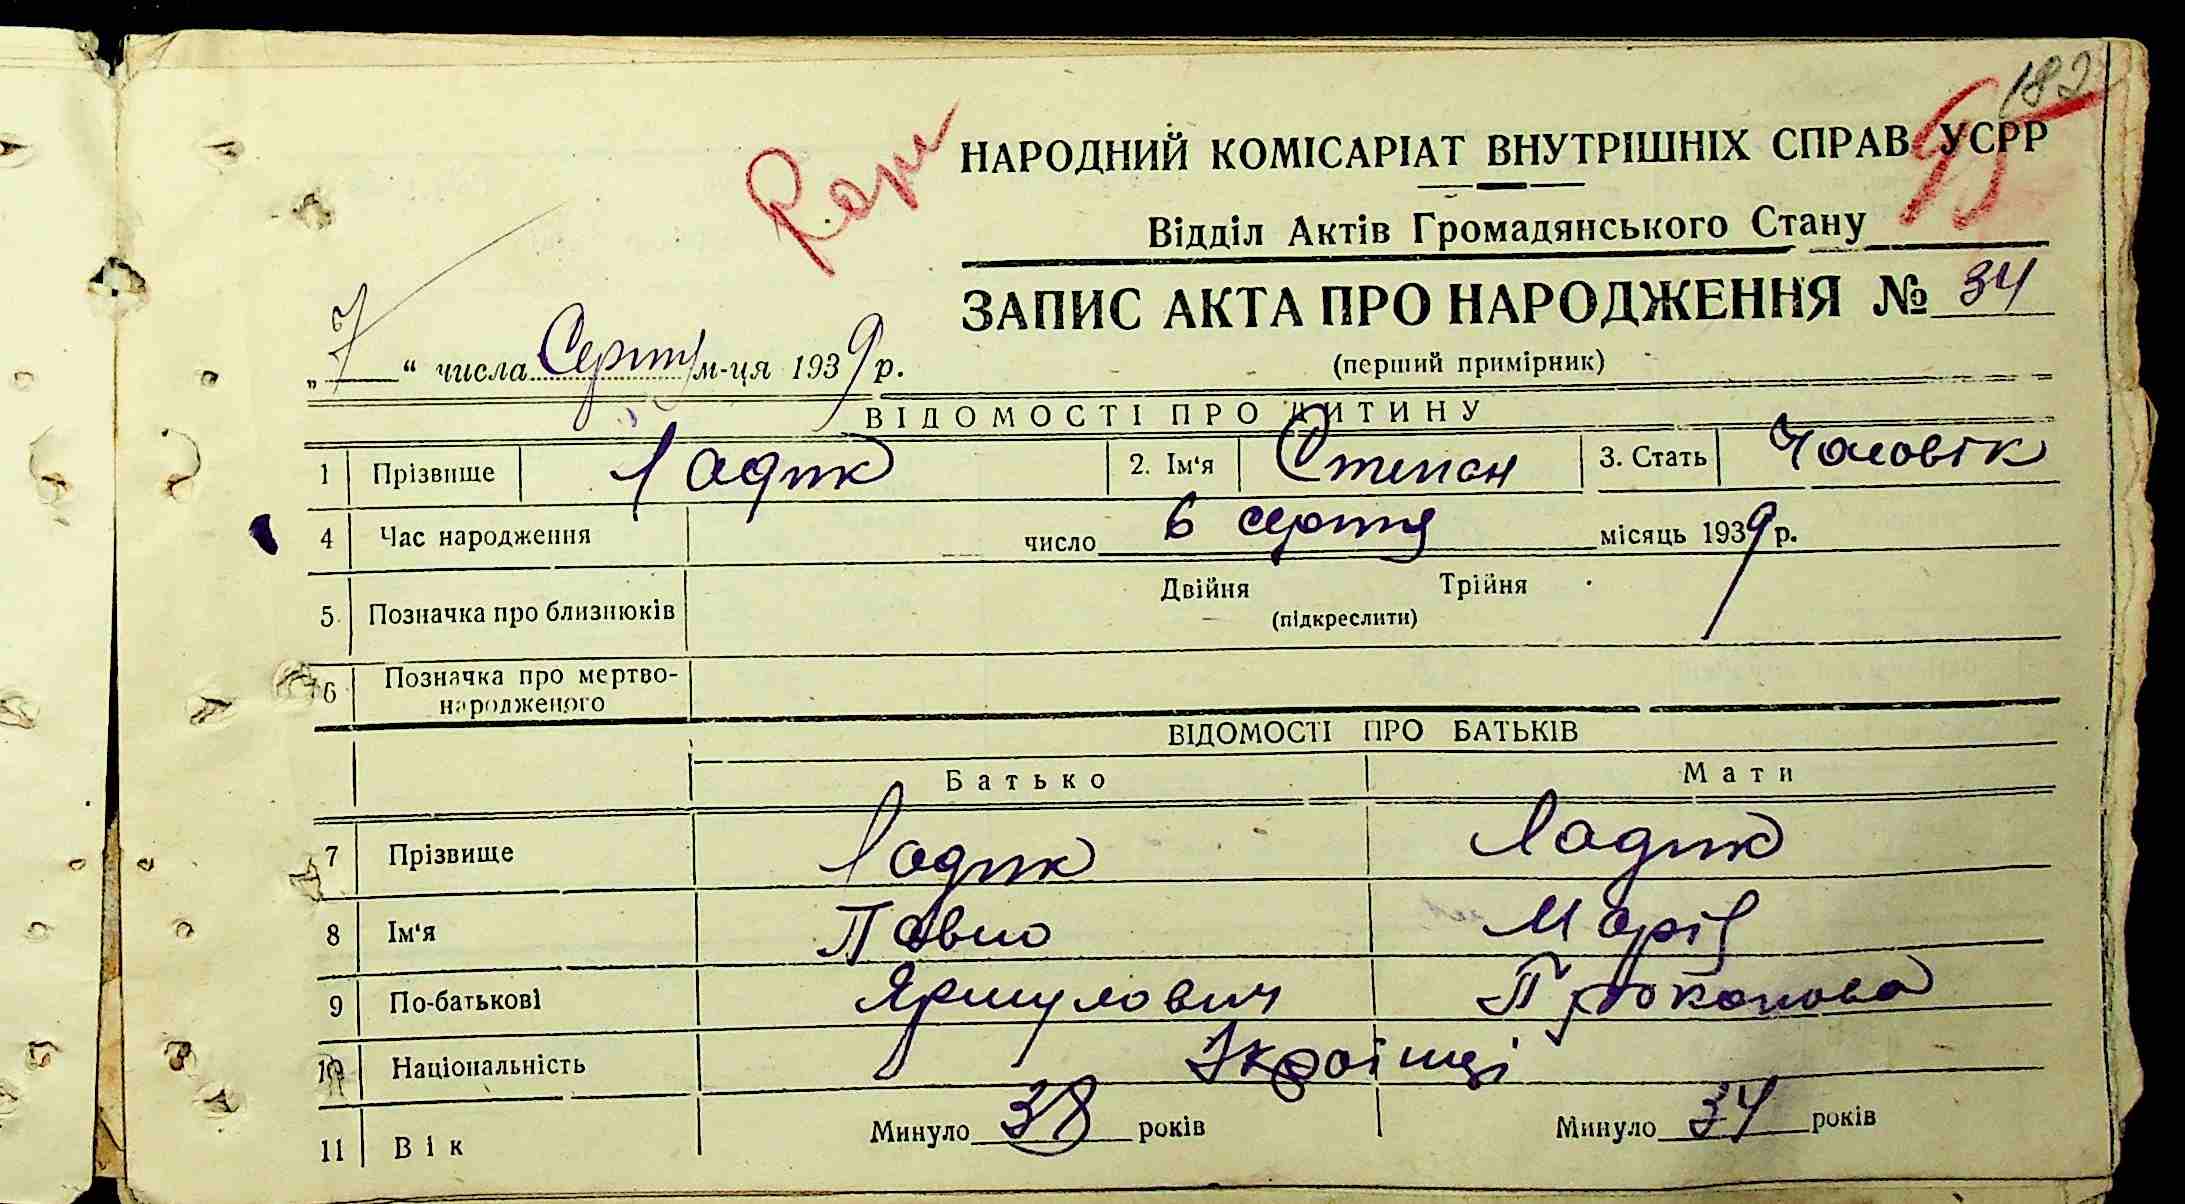 182
95
НАРОДНИЙ КОМІСАРІАТ ВНУТРІШНІХ СПРАВ УСРР
Відділ Актів Громадянського Стану
ЗАПИС АКТА ПРО НАРОДЖЕННЯ № 34
(перший примірник)
„7“ числа Серпня м-ця 1939 р.
ВІДОМОСТІ ПРО ДИТИНУ
1 Прізвище Ладик 2. Ім'я Степан 3. Стать Чоловік
4 Час народження число 6 серпня місяць 1939 р.
Двійня Трійня
5 Позначка про близнюків (підкреслити)
6 Позначка про мертво-
народженого
ВІДОМОСТІ ПРО БАТЬКІВ
Батько Мати
7 Прізвище Ладик Ладик
8 Ім'я Павло Марія
9 По-батькові Прокопова
10 Національність Українці
11 Вік Минуло 38 років Минуло 34 років